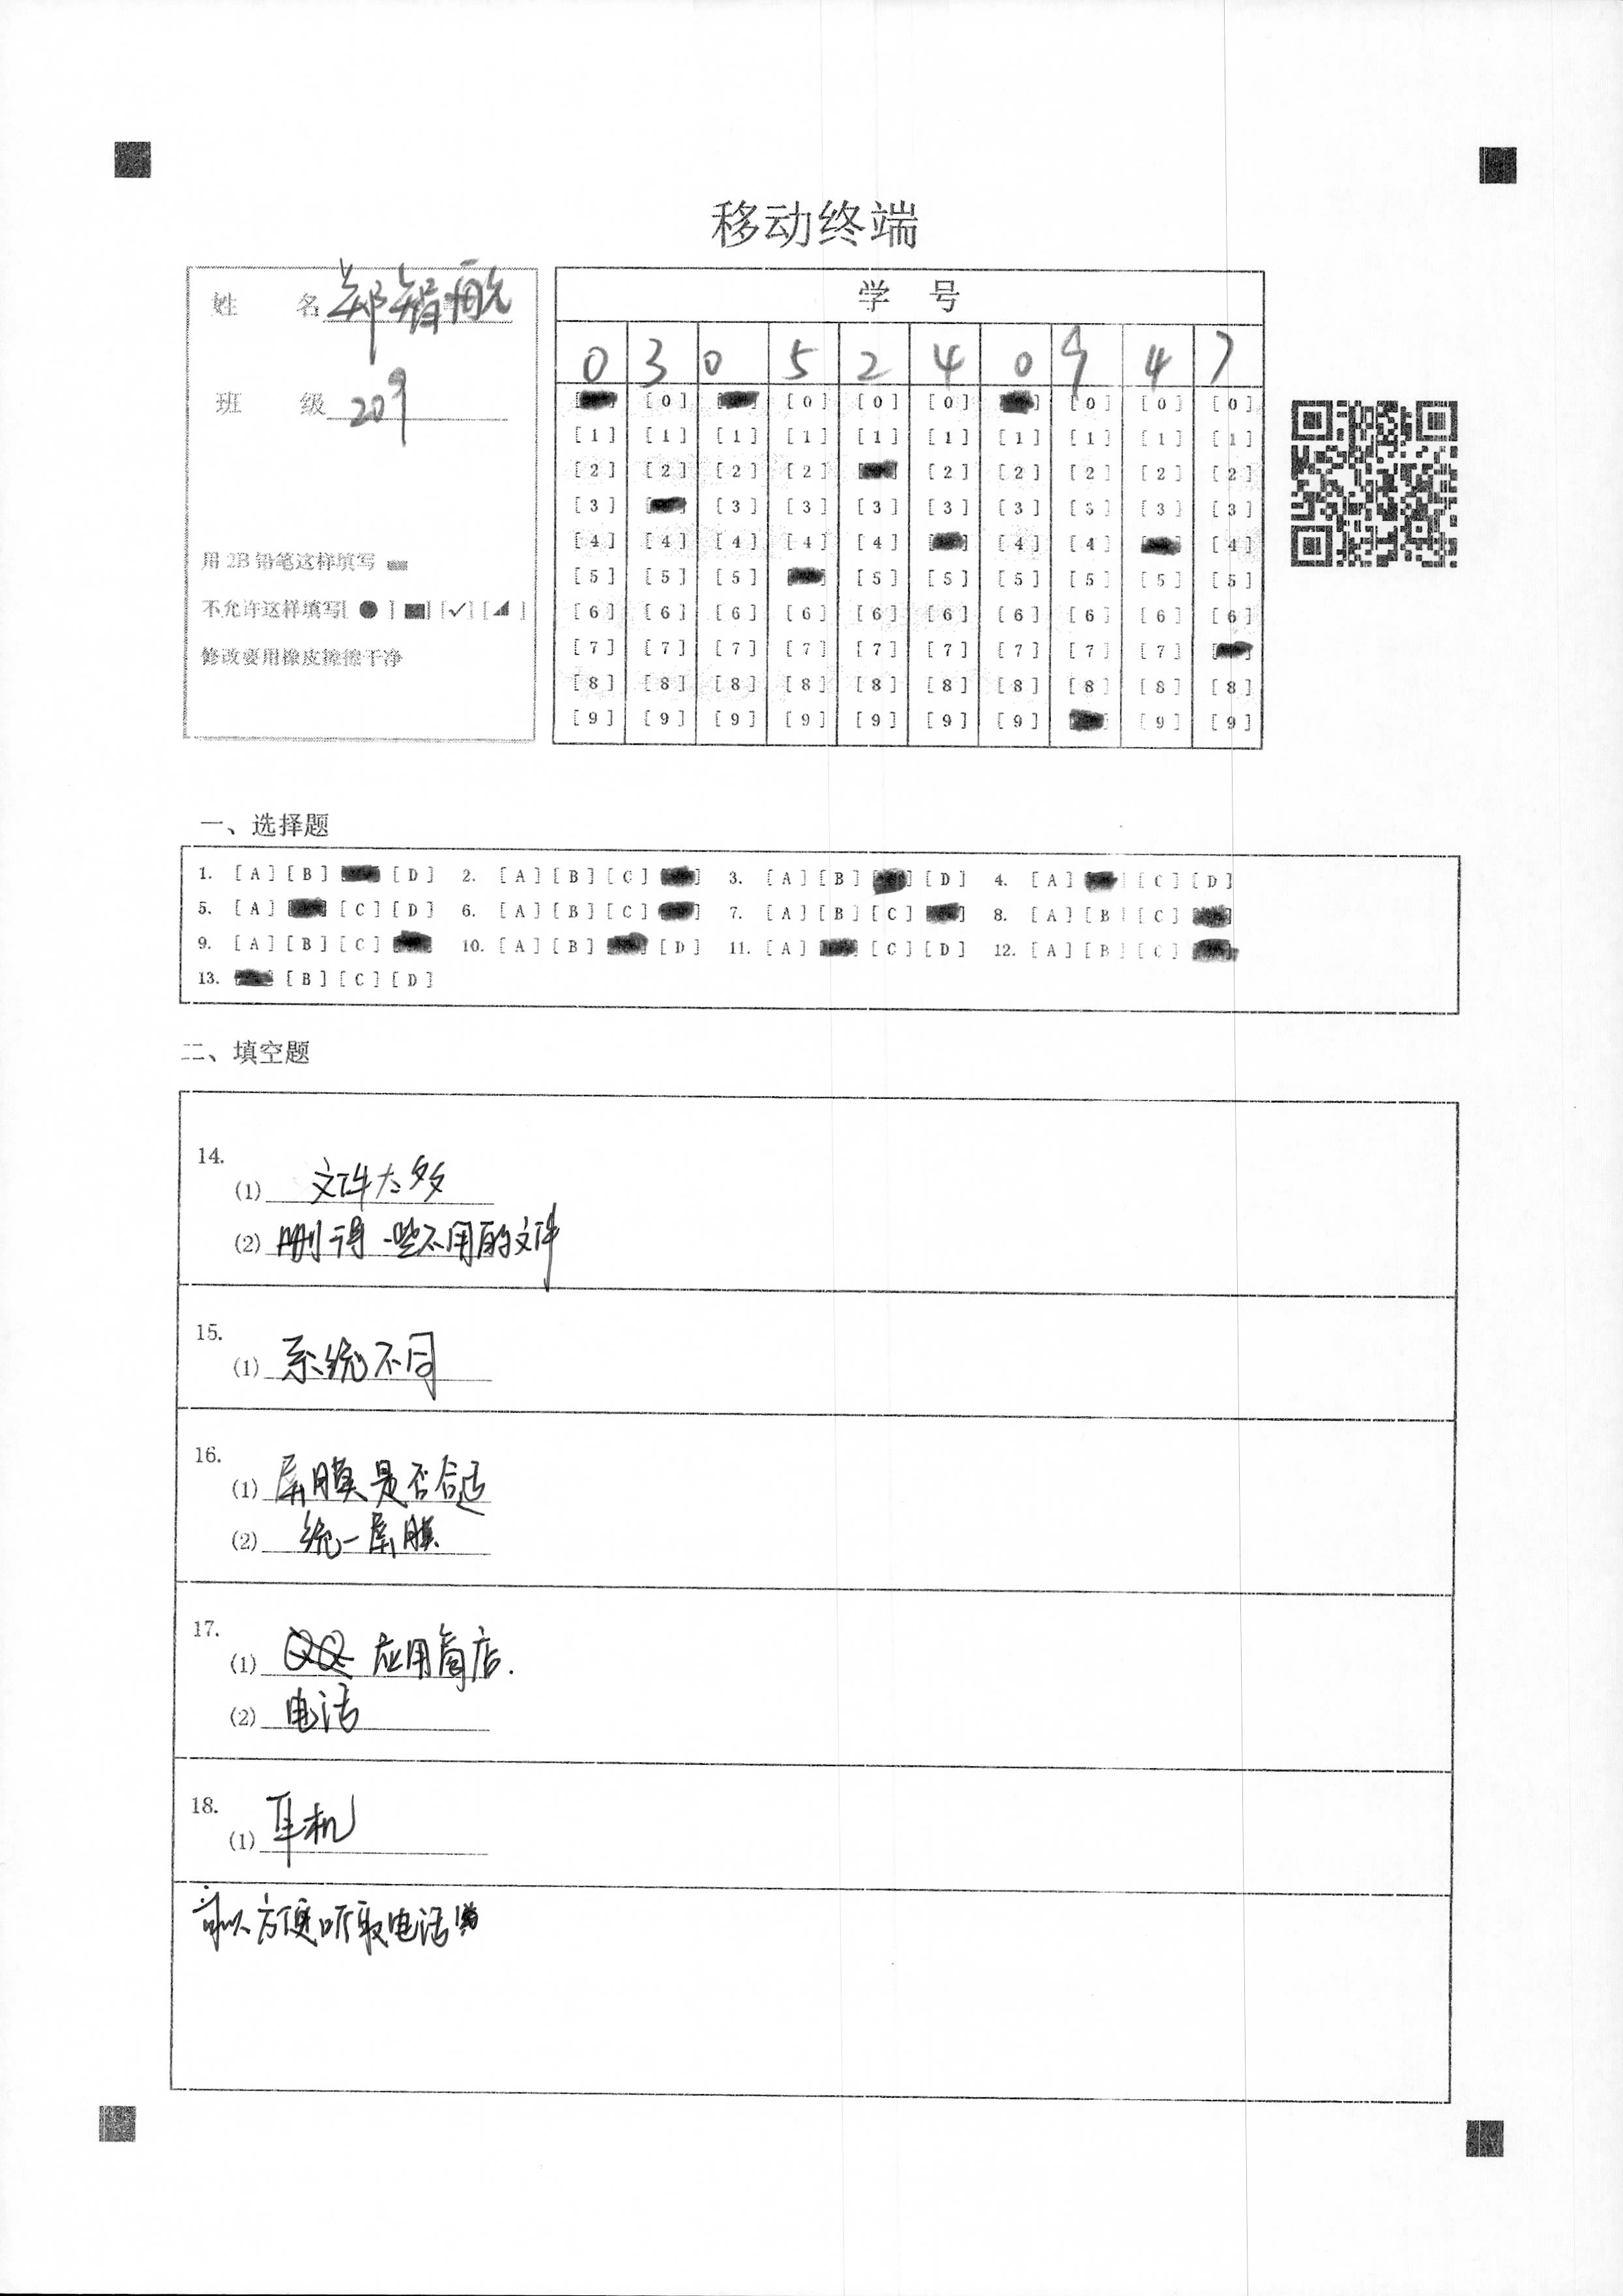 移动终端
姓 名 郑智航
班 级 209
用 2B 铅笔这样填写
不允许这样填写[ ● ] [■] [✓] [◢ ]
修改要用橡皮擦擦干净
学 号
0 3 0 5 2 4 0 9 4 7
[0] [0] [0] [0] [0] [0] [0]
[1] [1] [1] [1] [1] [1] [1] [1] [1] [1]
[2] [2] [2] [2] [2] [2] [2] [2] [2]
[3] [3] [3] [3] [3] [3] [3] [3] [3]
[4] [4] [4] [4] [4] [4] [4] [4]
[5] [5] [5] [5] [5] [5] [5] [5] [5]
[6] [6] [6] [6] [6] [6] [6] [6] [6] [6]
[7] [7] [7] [7] [7] [7] [7] [7] [7]
[8] [8] [8] [8] [8] [8] [8] [8] [8] [8]
[9] [9] [9] [9] [9] [9] [9] [9] [9]
一、选择题
1. [A] [B] [D] 2. [A] [B] [C] 3. [A] [B] [D] 4. [A] [C] [D]
5. [A] [C] [D] 6. [A] [B] [C] 7. [A] [B] [C] 8. [A] [B] [C]
9. [A] [B] [C] 10. [A] [B] [D] 11. [A] [C] [D] 12. [A] [B] [C]
13. [B] [C] [D]
二、填空题
14.
(1) 文件太多
(2) 删得一些不用的文件
15.
(1) 系统不同
16.
(1) 屏膜是否合适
(2) 统一屏膜
17.
(1) 应用商店.
(2) 电话
18.
(1) 耳机
可以方便听取电话